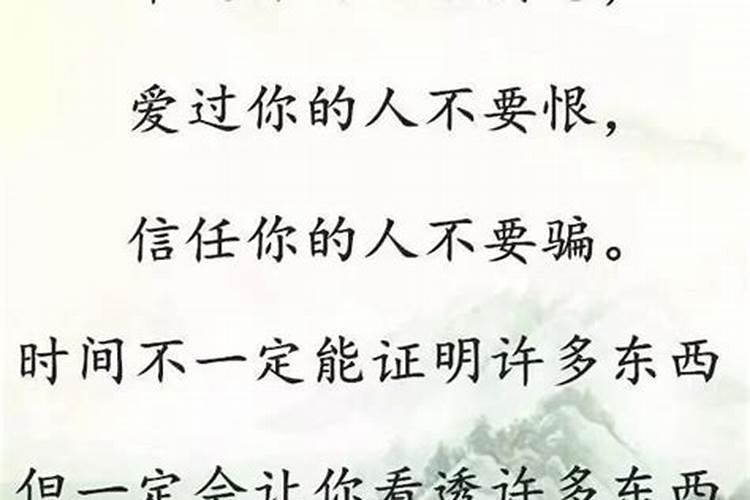 爱过你的人不要恨，
信任你的人不要骗。
时间不一定能证明许多东西
但一定会让你看透许多东西